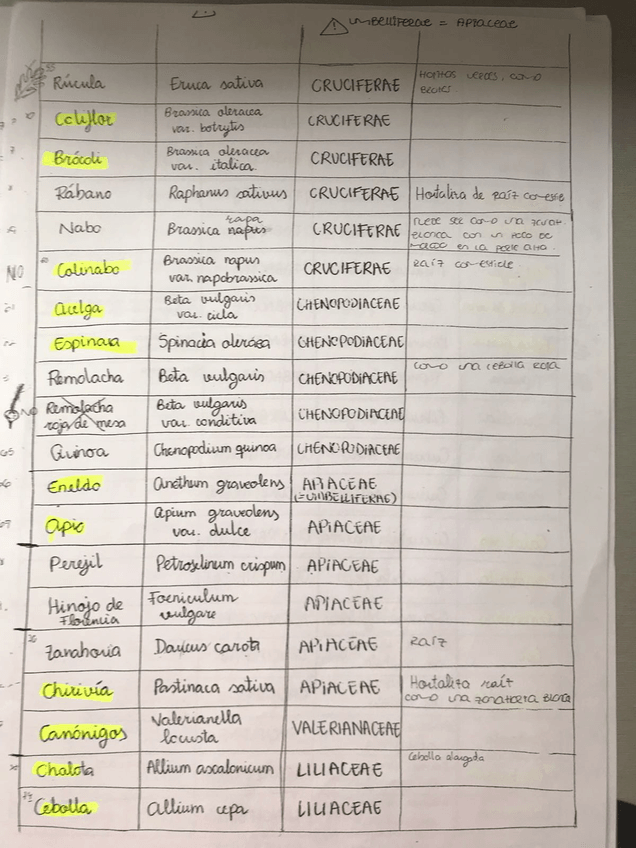 UMBELLIFERAE = APIACEAE
Rúcula Eruca sativa CRUCIFERAE Hojitas verdes, como
brotes.
Coliflor Brassica oleracea CRUCIFERAE
var. botrytis
Brócoli Brassica oleracea CRUCIFERAE
var. italica
Rábano Raphanus sativus CRUCIFERAE Hortaliza de raíz
Nabo Brassica napus CRUCIFERAE
rapa
en la parte alta.
NO Colinabo Brassica napus CRUCIFERAE Raíz comestible
var. napobrassica
Acelga Beta vulgaris CHENOPODIACEAE
var. cicla
Espinaca Spinacia oleracea CHENOPODIACEAE
Remolacha Beta vulgaris CHENOPODIACEAE como una cebolla roja
Remolacha Beta vulgaris CHENOPODIACEAE
roja de mesa var. conditiva
Quinoa Chenopodium quinoa CHENOPODIACEAE
Eneldo Anethum graveolens APIACEAE
(=UMBELLIFERAE)
Apio Apium graveolens APIACEAE
var. dulce
Perejil Petroselinum crispum APIACEAE
Hinojo de Foeniculum APIACEAE
Florencia vulgare
Zanahoria Daucus carota APIACEAE Raíz
Chirivía Pastinaca sativa APIACEAE Hortaliza raíz
como una zanahoria blanca
Canónigos Valerianella VALERIANACEAE
locusta
Chalota Allium ascalonicum LILIACEAE Cebolla alargada
Cebolla Allium cepa LILIACEAE